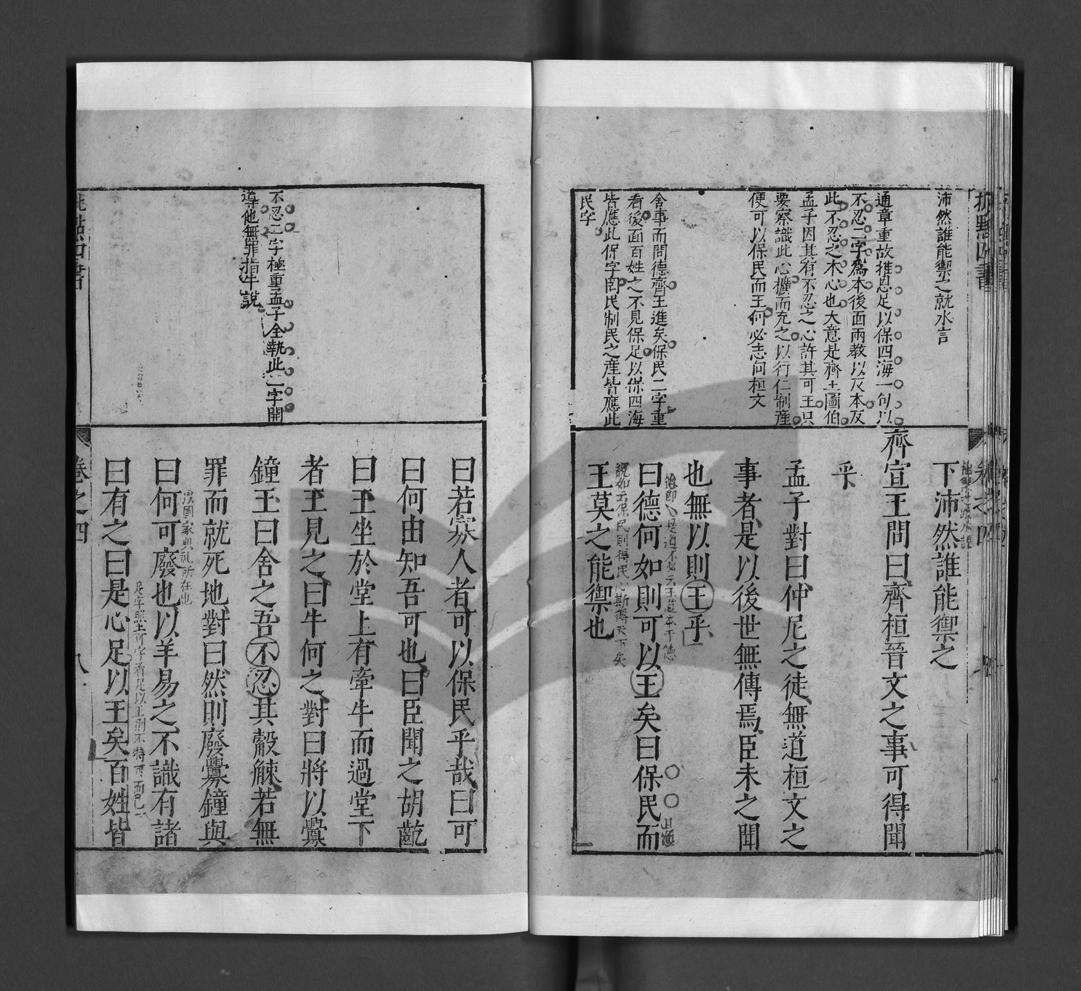 沛然誰能禦之就水言
通章重故推恩足以保四海一句以
不忍二字為本後面兩敎以反本反
此不忍之本心也大意是齊王圖伯
孟子因其有不忍之心許其可王只
要察識此心擴而充之以行仁制產
便可以保民而王何必志向桓文
舍事而問德齊王進矣保民二字重
看後面百姓之不見保足以保四海
皆應此保字曰民制民之產皆應此
民字
下沛然誰能禦之
齊宣王問曰齊桓晉文之事可得聞
乎
孟子對曰仲尼之徒無道桓文之
事者是以後世無傳焉臣未之聞
也無以則王乎
曰德何如則可以王矣曰保民而
王莫之能禦也
不忍二字極重孟子全執此二字開
導他無罪指牛說
曰若寡人者可以保民乎哉曰可
曰何由知吾可也曰臣聞之胡齕
曰王坐於堂上有牽牛而過堂下
者王見之曰牛何之對曰將以釁
鐘王曰舍之吾不忍其觳觫若無
罪而就死地對曰然則廢釁鐘與
曰何可廢也以羊易之不識有諸
曰有之曰是心足以王矣百姓皆
卷之四